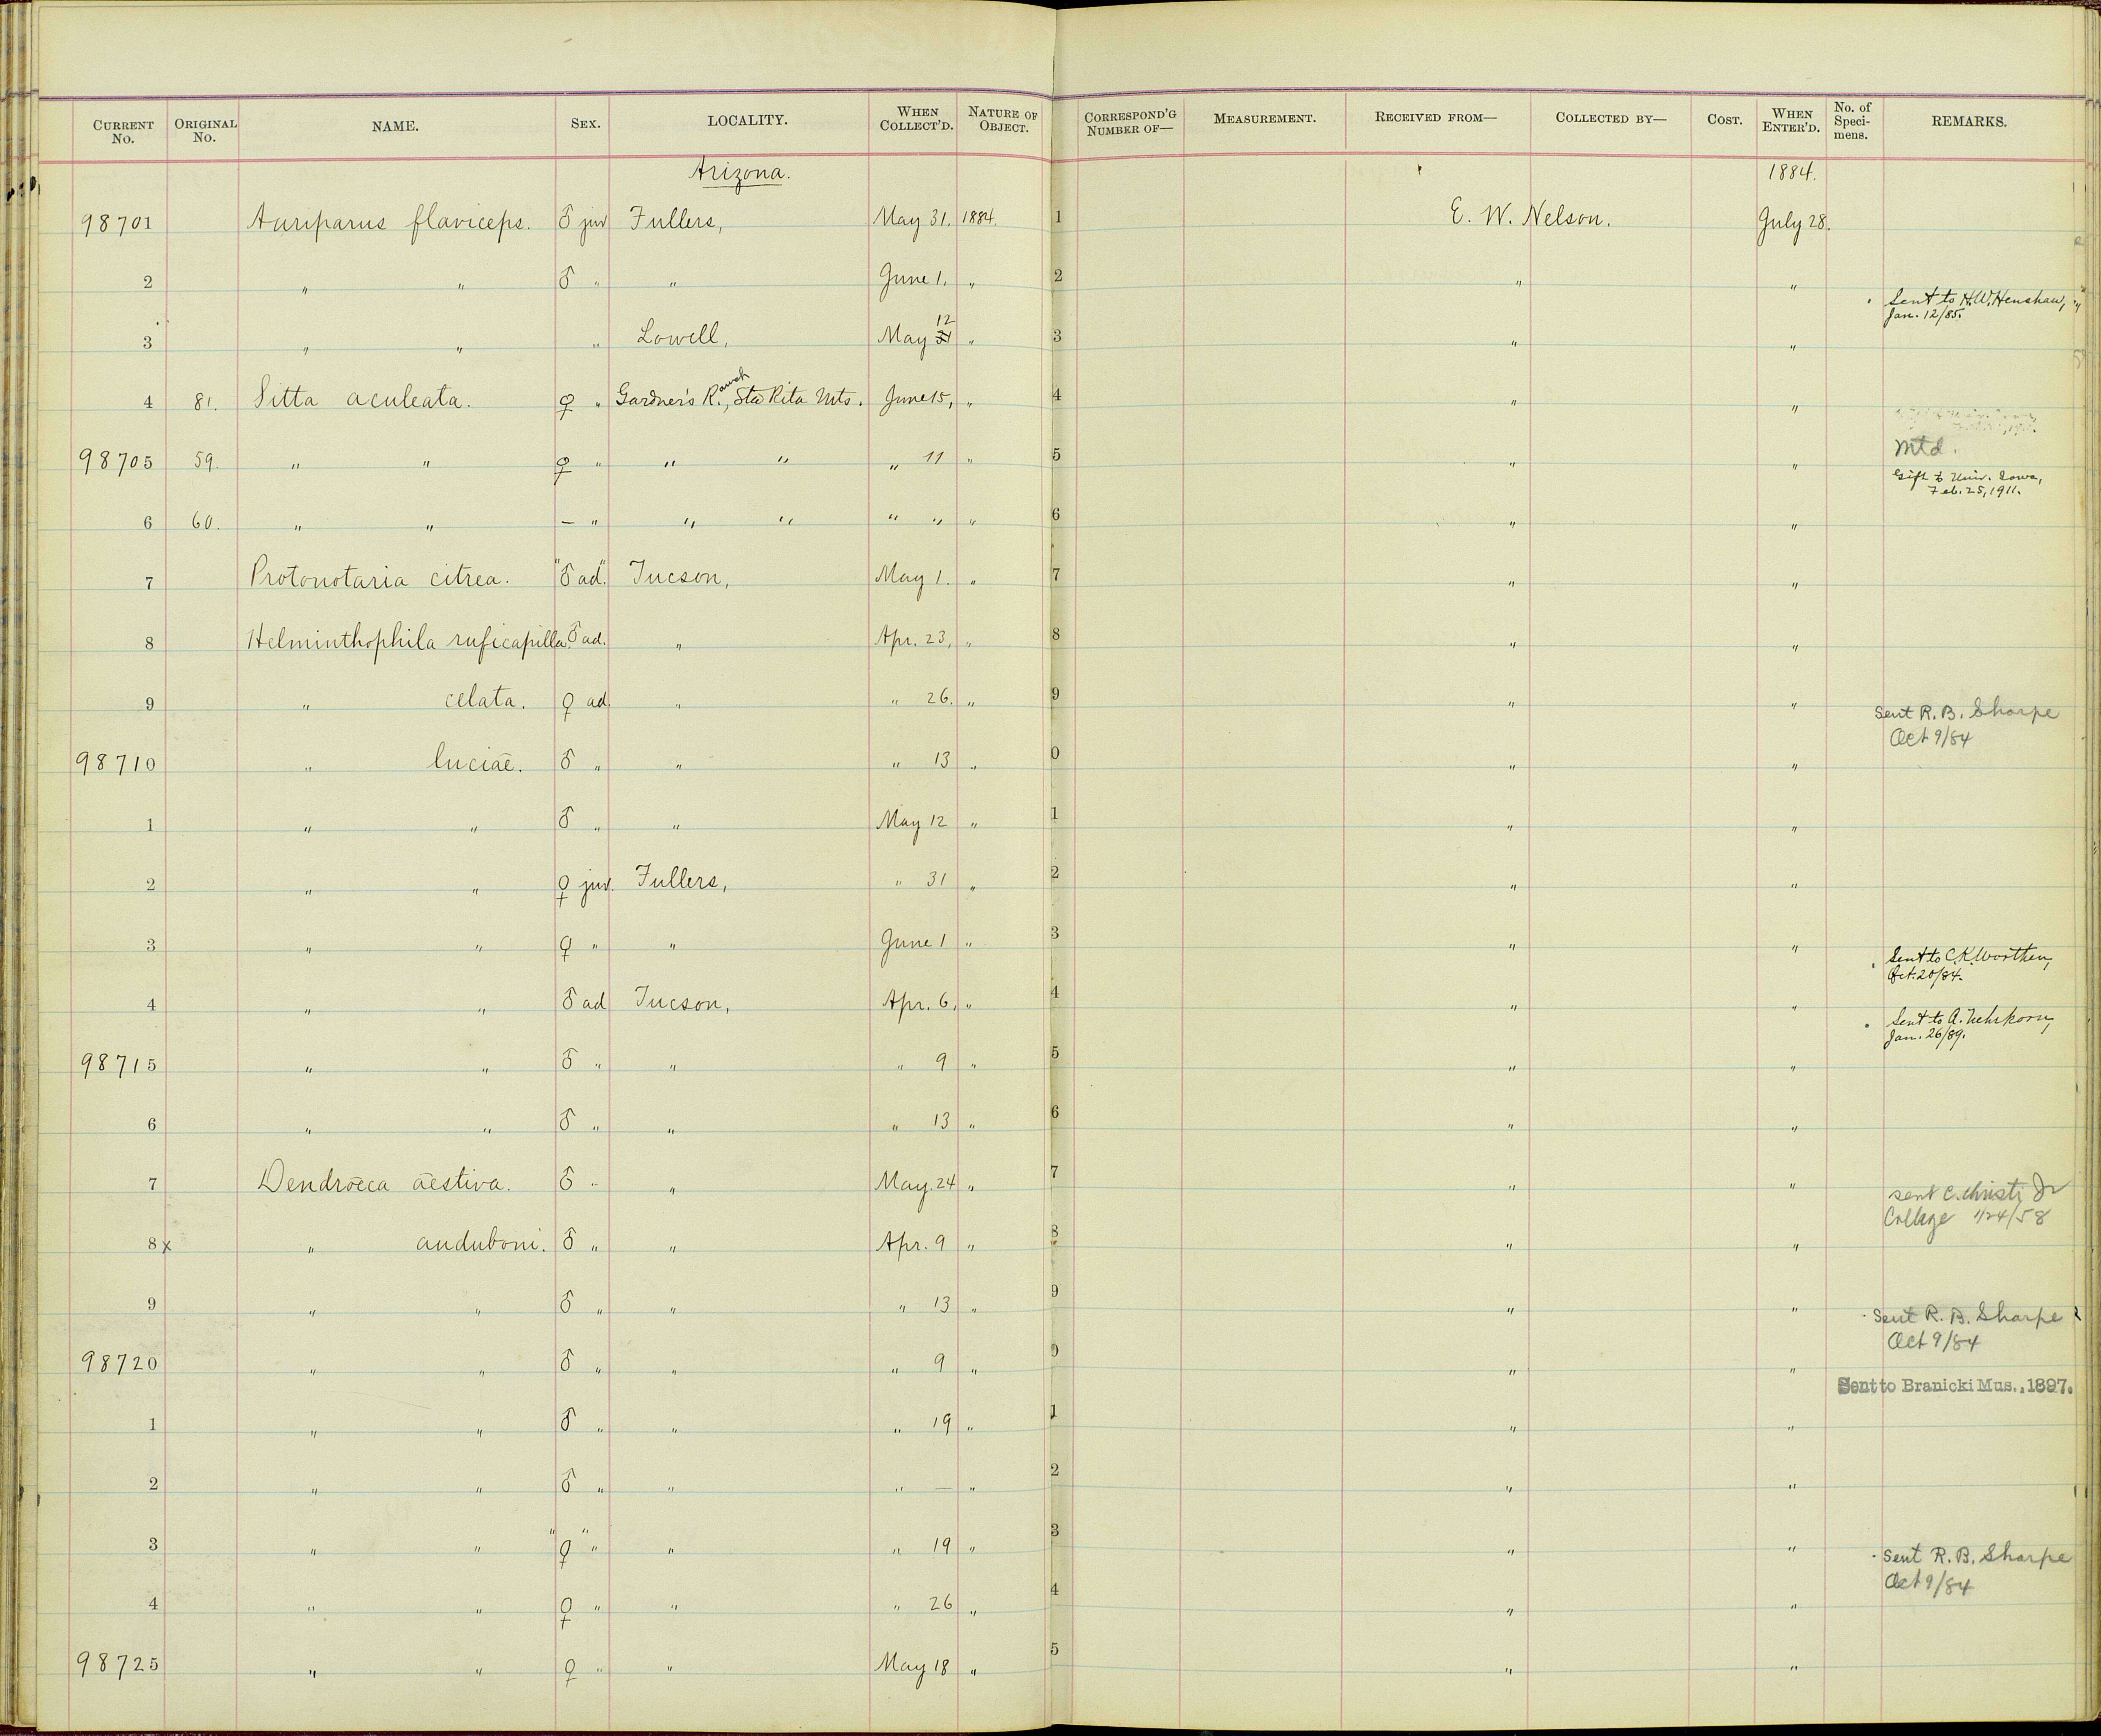 CURRENT No. ORIGINAL No. NAME. SEX. LOCALITY. WHEN COLLECT'D. NATURE OF OBJECT. CORRESPOND'G NUMBER OF— MEASUREMENT. RECEIVED FROM— COLLECTED BY— COST. WHEN ENTER'D. No. of Specimens. REMARKS.
Arizona. 1884.
98701 Auriparus flaviceps. ♂ juv Fullers, May 31. 1884. 1 E. W. Nelson. July 28.
2 " " ♂ " " June 1. " 2 " "
Sent to H.W. Henshaw,
Jan. 12/85.
3 " " " Lowell, May 12 " 3 " "
4 81. Sitta aculeata. ♀ " Gardner's Ranch, Sta Rita Mts. June 15, " 4 " "
98705 59. " " ♀ " " " " 11 " 5 " " Mtd.
Gift to Univ. Iowa,
Feb. 25, 1911.
6 60. " " — " " " " " " 6 " "
7 Protonotaria citrea. "♂ ad." Tucson, May 1. " 7 " "
8 Helminthophila ruficapilla. ♂ ad. " Apr. 23, " 8 " "
9 " celata. ♀ ad. " " 26. " 9 " "
Sent R. B. Sharpe
Oct 9/84
98710 " luciae. ♂ " " " 13 " 0 " "
1 " " ♂ " " May 12 " 1 " "
2 " " ♀ juv. Fullers, " 31 " 2 " "
3 " " ♀ " " June 1 " 3 " "
Sent to C.K. Worthen,
Oct. 20/84.
4 " " ♂ ad Tucson, Apr. 6, " 4 " "
Sent to A. Nehrkorn,
Jan. 26/89.
98715 " " ♂ " " " 9 " 5 " "
6 " " ♂ " " " 13 " 6 " "
7 Dendroeca aestiva. ♂ " " May. 24 " 7 " "
sent C. Christi Jr
College 1/24/58
8 x " auduboni. ♂ " " Apr. 9 " 8 " "
9 " " ♂ " " " 13 " 9 " "
Sent R. B. Sharpe
Oct 9/84
98720 " " ♂ " " " 9 " 0 " "
Sent to Branicki Mus., 1897.
1 " " ♂ " " " 19 " 1 " "
2 " " ♂ " " " — " 2 " "
3 " " "♀" " " " 19 " 3 " "
Sent R. B. Sharpe
Oct 9/84
4 " " ♀ " " " 26 " 4 " "
98725 " " ♀ " " May 18 " 5 " "